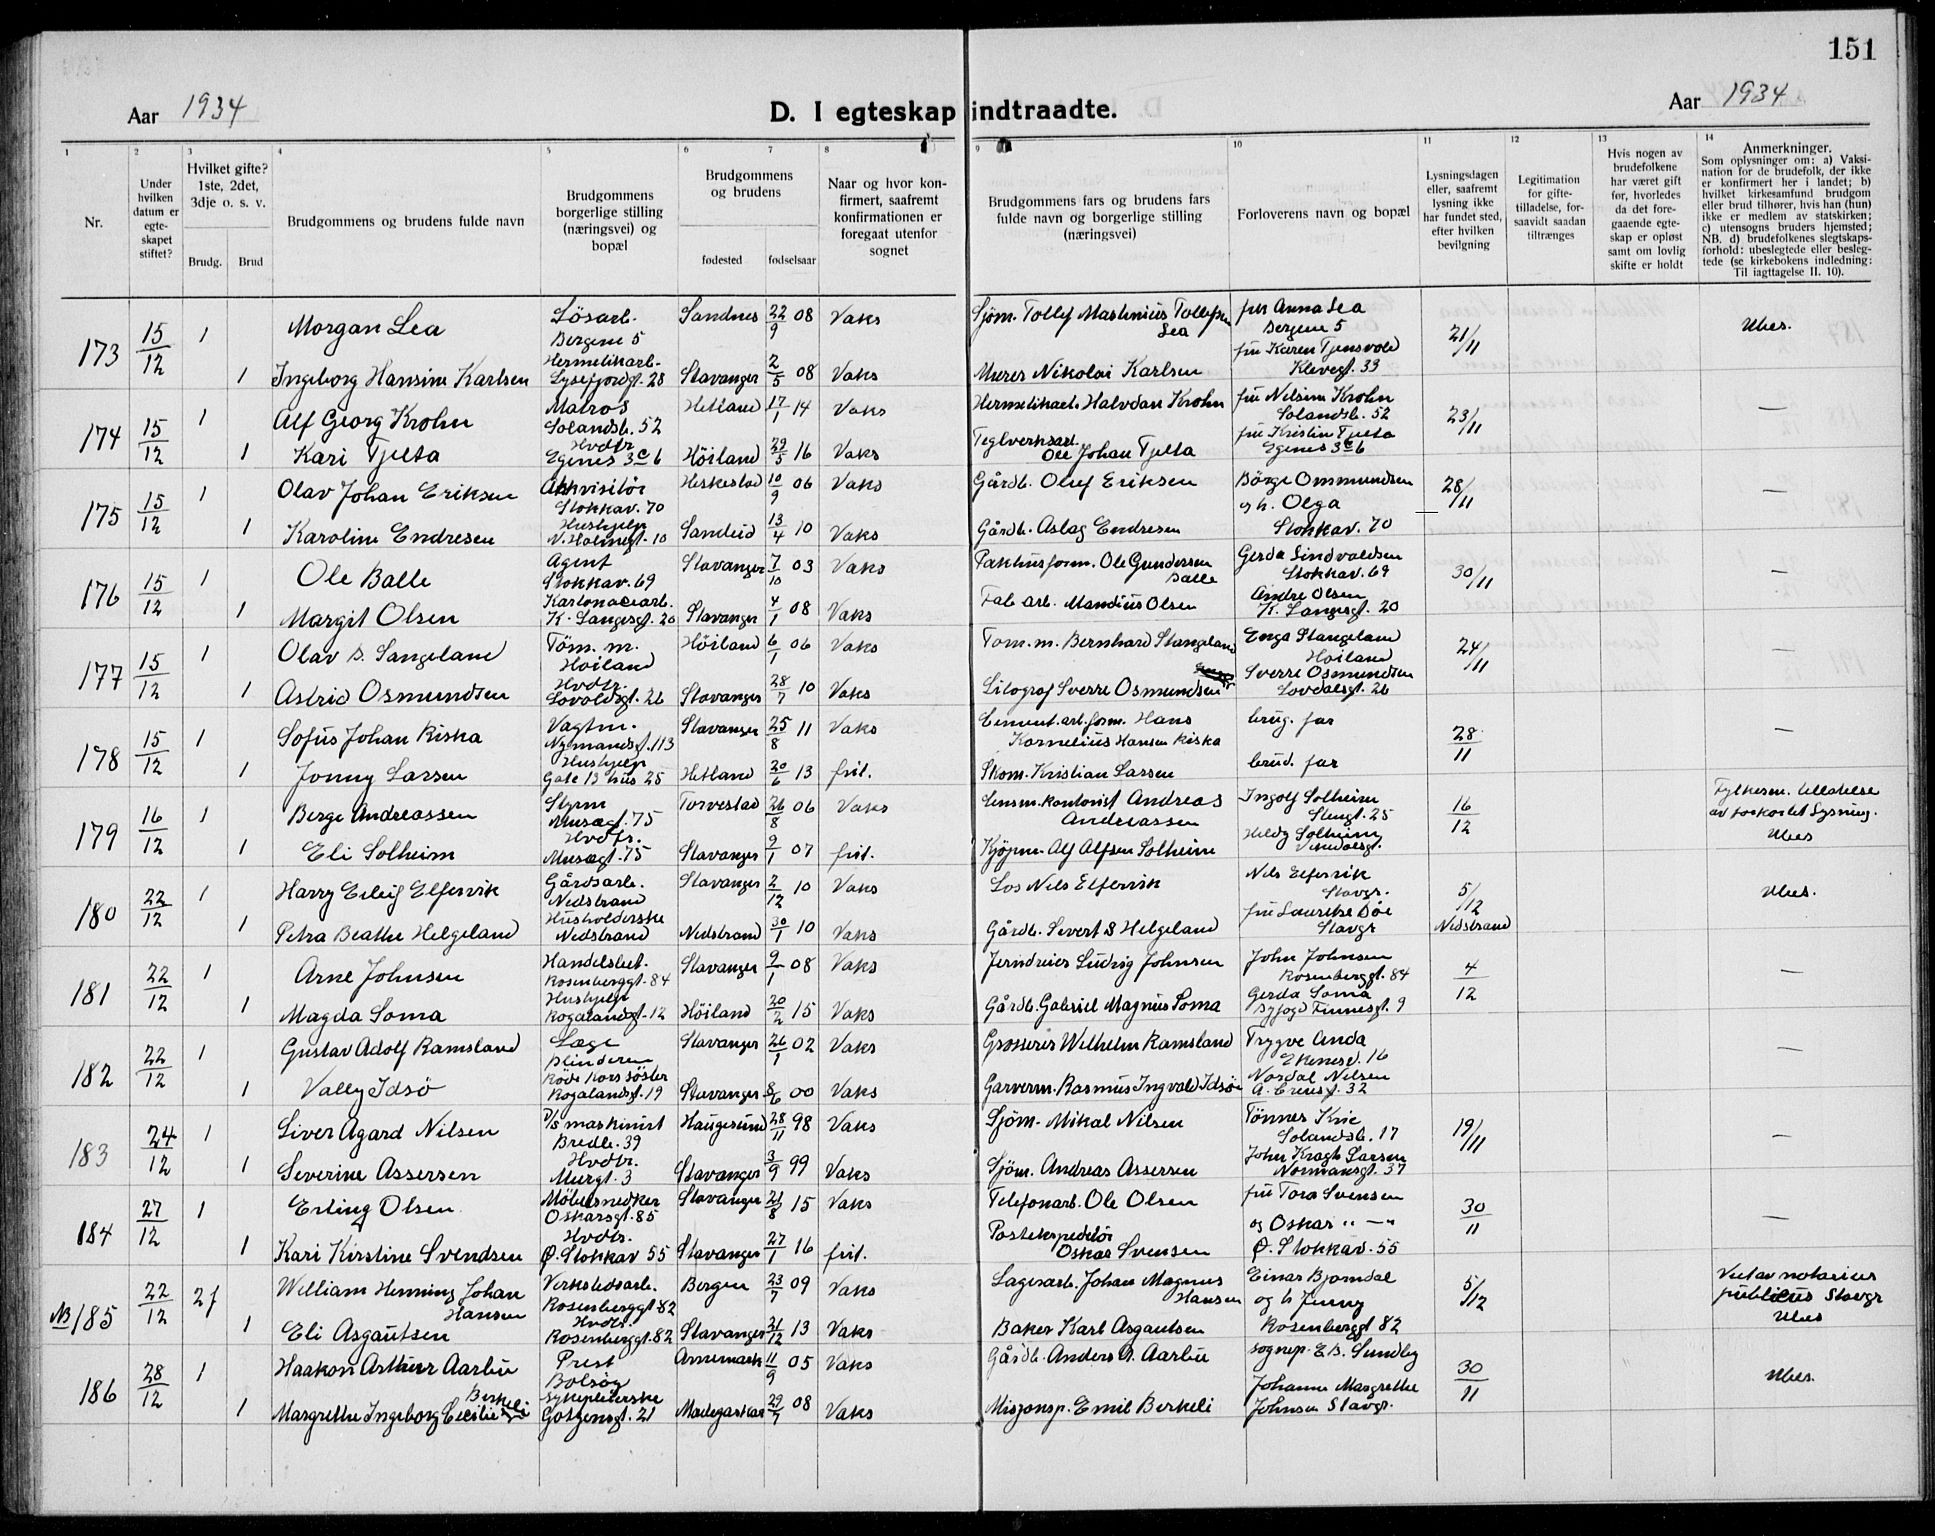 151
Aar 1934
D. I egteskap indtraadte.
Aar 1934
1 2 3 4 5 6 7 8 9 10 11 12 13 14
Nr.
Under hvilken datum er egte-skapet stiftet?
Hvilket gifte? 1ste, 2det, 3dje o. s. v.
Brudg. Brud
Brudgommens og brudens fulde navn
Brudgommens borgerlige stilling (næringsvei) og bopæl
Brudgommens og brudens
fødested fødselsaar
Naar og hvor kon-firmert, saafremt konfirmationen er foregaat utenfor sognet
Brudgommens fars og brudens fars fulde navn og borgerlige stilling (næringsvei)
Forloverens navn og bopæl
Lysningsdagen eller, saafremt lysning ikke har fundet sted, efter hvilken bevilgning
Legitimation for gifte-tilladelse, for-saavidt saadan tiltrænges
Hvis nogen av brudefolkene har været gift før, hvorledes da det fore-gaaende egte-skap er opløst samt om lovlig skifte er holdt
Anmerkninger.
Som oplysninger om: a) Vaksi-nation for de brudefolk, der ikke er konfirmert her i landet; b) hvilket kirkesamfund brudgom eller brud tilhører, hvis han (hun) ikke er medlem av statskirken; c) utensogns bruders hjemsted; NB. d) brudefolkenes slegtskaps-forhold: ubeslegtede eller besleg-tede (se kirkebokens indledning: Til iagttagelse II. 10).
173 15/12 1 Morgan Lea Lösarb. Bergene 5 Sandnes 22/9 08 Vaks Sjöm. Tollef Martinius Tollefsen Lea fru Anna Lea Bergene 5 21/11 Ubes.
1 Ingeborg Hansine Karlsen Hermetikarb. Lysefjordgt. 28 Stavanger 2/5 08 Vaks Murer Nikolai Karlsen fru Karen Tjensvold Klevegt. 33
174 15/12 1 Alf Georg Krohn Matros Solandsb. 52 Hetland 17/1 14 Vaks Hermetikarb. Halvdan Krohn fru Nilsine Krohn Solandsb. 52 23/11 —
1 Kari Tjelta Hvdtr. Egenes 3c6 Höiland 29/5 16 Vaks Teglverksarb. Ole Johan Tjelta fru Kristin Tjelta Egenes 3c6
175 15/12 1 Olav Johan Eriksen Akkvisitör Stokkav. 70 Heskestad 10/9 06 Vaks Gårdb. Oluf Eriksen Börge Ommundsen og h. Olga Stokkav. 70 28/11 —
1 Karoline Endresen Hushjelp N. Holmegt. 10 Sandeid 13/4 10 Vaks Gårdb. Aslag Endresen
176 15/12 1 Ole Balle Agent Stokkav. 69 Stavanger 7/10 03 Vaks Pakhusform. Ole Gundersen Balle Gerda Lindvaldsen Stokkav. 69 30/11 —
1 Margit Olsen Kartonagearb. K. Langesgt. 20 Stavanger 4/1 08 Vaks Fab arb. Mandius Olsen Andre Olsen K. Langesgt. 20
177 15/12 1 Olav B. Sangeland Töm. m. Höiland Höiland 6/1 06 Vaks Tom. m. Bernhard Stangeland Enga Stangeland Höiland 24/11 —
1 Astrid Osmundsen Hvdtr. Lovoldsgt. 26 Stavanger 28/7 10 Vaks Litograf Sverre Osmundsen Sverre Osmundsen Lovdalsgt. 26
178 15/12 1 Sofus Johan Riska Vagtm. Nymansgt. 113 Stavanger 25/8 11 Vaks Cement. arb. form. Hans Kornelius Hansen Riska brug. far 28/11 —
1 Jonny Larsen Hushjelp Gate 13 hus 25 Hetland 20/6 13 fril. Skom. Kristian Larsen brud. far
179 16/12 1 Berge Andreassen Styrm Musægt. 75 Torvestad 26/8 06 Vaks Lensm. kontorist Andreas Andreassen Ingolf Solheim Stengt. 25 16/12 Fylkesm. tillatelse av forkortet Lysning. Ubes
1 Eli Solheim Hvdtr. Musægt. 75 Stavanger 9/1 07 fril. Kjöpm. Alf Alfsen Solheim Heldy Solheim
180 22/12 1 Harry Eilif Elfersvik Gårdsarb. Nedstrand Stavanger 2/12 10 Vaks Los Nels Elfersvik Nels Elfersvik Stavgr. 5/12 Nedstrand Ubes.
1 Petra Beathe Helgeland Husholderske Nedstrand Nedstrand 30/1 10 Vaks Gårdb. Severt S Helgeland fru Lauritze Böe Stavgr
181 22/12 1 Arne Johnsen Handelsbet. Rosenberggt. 84 Stavanger 9/1 08 Vaks Jerndreier Ludvig Johnsen John Johnsen Rosenberggt. 84 4/12 —
1 Magda Soma Hushjelp Rogalandsgt. 12 Höiland 20/2 15 Vaks Gårdb. Gabriel Magnus Soma Gerda Soma Byfogd Finnesgt. 9
182 22/12 1 Gustav Adolf Ramsland Læge Blindern Stavanger 26/1 02 Vaks Grosserer Wilhelm Ramsland Trygve Anda Ekenesv. 16 —
1 Vally Idsö Röde Kors söster Rogalandsgt. 19 Stavanger 8/6 00 Vaks Garverm. Rasmus Ingvald Idsöe Nordal Nilsen 32
183 24/12 1 Siver Agard Nilsen D/s maskinist Bredb. 39 Haugesund 28/11 98 Vaks Sjöm. Mikal Nilsen Tönnes Krie Solandsb. 17 19/11 —
1 Severine Assersen Hvdtr. Murgt. 3 Stavanger 3/9 99 Vaks Sjöm. Andreas Assersen John Kragh Larsen Normansgt. 37
184 27/12 1 Erling Olsen Möbelsnedker Oskarsgt. 85 Stavanger 21/8 15 Vaks Telefonarb. Ole Olsen fru Tora Svensen 30/11 —
1 Kari Kirstine Svendsen Hvdtr. Ø. Stokkav 55 Stavanger 27/1 16 fril. Postekspeditör Oskar Svensen og Oskar " — " Ø. Stokkav. 55
NB 185 22/12 2f William Henning Johan Hansen Verkstedsarb. Rosenberggt 82 Bergen 23/7 09 Vaks Lagerarb. Johan Magnus Hansen Einar Bjorndal og h Jenny Rosenberggt 82 5/12 Viet av notarius publicus Stavgr Ubes
1 Eli Asgautsen Hvdtr. Rosenberggt. 82 Stavanger 21/12 13 Vaks Baker Karl Asgautsen
186 28/12 1 Haakon Arthur Aarbu Prest Bolsöy Aremark 11/9 05 Vaks Gårdb. Anders A. Aarbu sognep. E. B. Sundby 30/11 Ubes.
1 Margrethe Ingeborg Cecilie Berkeli Sykepleierske Gotzensgt. 21 Madegaskar 29/7 08 Vaks Misjonsp. Emil Berkeli Johanne Margrethe Johnsen Stavgr.